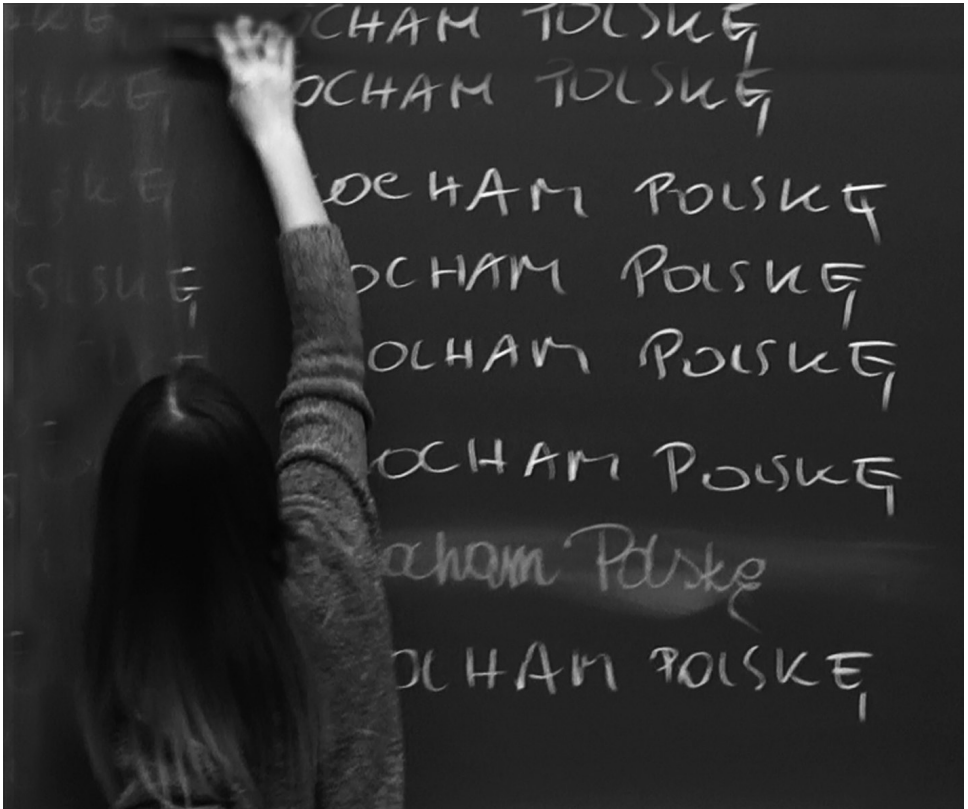 OCHAM POLSKĘ
OCHAM POLSKĘ
KOCHAM POLSKĘ
OCHAM POLSKĘ
OCHAM POLSKĘ
OCHAM POLSKĘ
ocham Polskę
OCHAM POLSKĘ